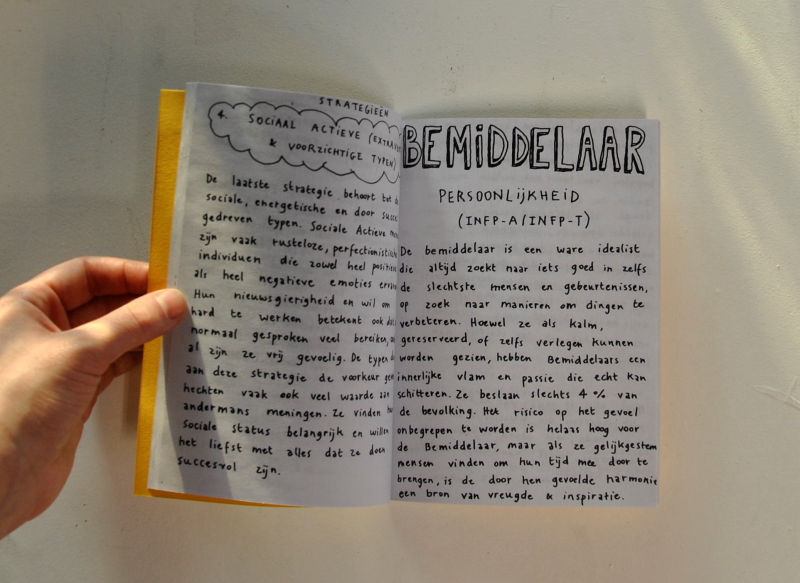 STRATEGIEËN
4. SOCIAAL ACTIEVE
& VOORZICHTIGE TYPEN)
De laatste strategie behoort tot de
sociale, energetische en door
gedreven typen. Sociale Actieve
zijn vaak rusteloze, perfectionistische
individuen die zowel heel
als heel negatieve emoties
Hun nieuwsgierigheid en wil om
hard te werken betekent ook
normaal gesproken veel bereiken,
al zijn ze vrij gevoelig. De typen
aan deze strategie de voorkeur
hechten vaak ook veel waarde aan
andermans meningen. Ze vinden
sociale status belangrijk en willen
het liefst met alles dat ze doen
succesvol zijn.
BEMIDDELAAR
PERSOONLIJKHEID
(INFP-A/INFP-T)
De bemiddelaar is een ware idealist
die altijd zoekt naar iets goed in zelfs
de slechtste mensen en gebeurtenissen,
op zoek naar manieren om dingen te
verbeteren. Hoewel ze als kalm,
gereserveerd, of zelfs verlegen kunnen
worden gezien, hebben Bemiddelaars een
innerlijke vlam en passie die echt kan
schitteren. Ze beslaan slechts 4 % van
de bevolking. Het risico op het gevoel
onbegrepen te worden is helaas hoog voor
de Bemiddelaar, maar als ze gelijkgestem
mensen vinden om hun tijd mee door te
brengen, is de door hen gevoelde harmonie
een bron van vreugde & inspiratie.